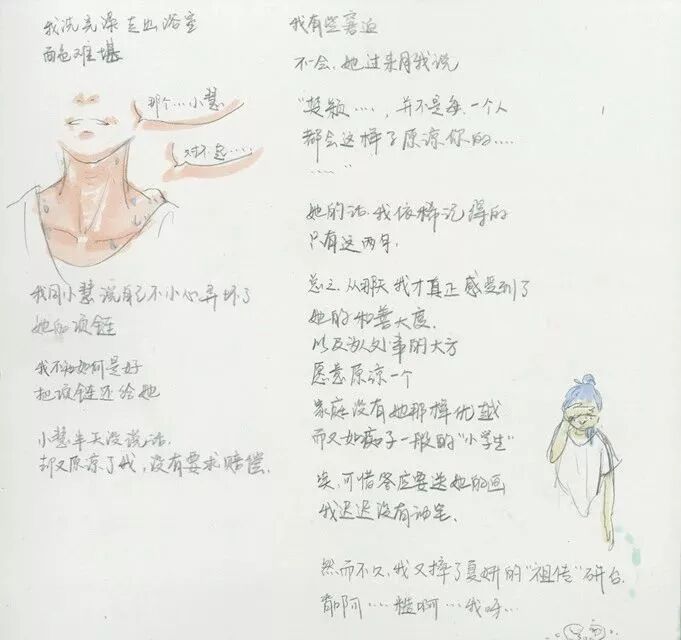 我洗完澡走出浴室
面色难堪
那个…小慧.
对不起……
我同小慧说自己不小心弄坏了
她的项链
我不知如何是好
把项链还给她
小慧半天没说话.
却又原谅了我,没有要求赔偿.
我有些窘迫
不一会,她过来同我说
"楚颖……,并不是每一个人
都会这样了原谅你的….
……"
她的话,我依稀记得的
只有这两句.
总之,从那天我才真正感受到了
她的和善大度.
以及为人处事的大方
愿意原谅一个
家庭没有她那样优越
而又如痴子一般的"小学生"
唉,可惜答应要送她的画
我迟迟没有动笔.
然而不久,我又摔了夏妍的"祖传"砚台.
啊……糙啊……我呀…